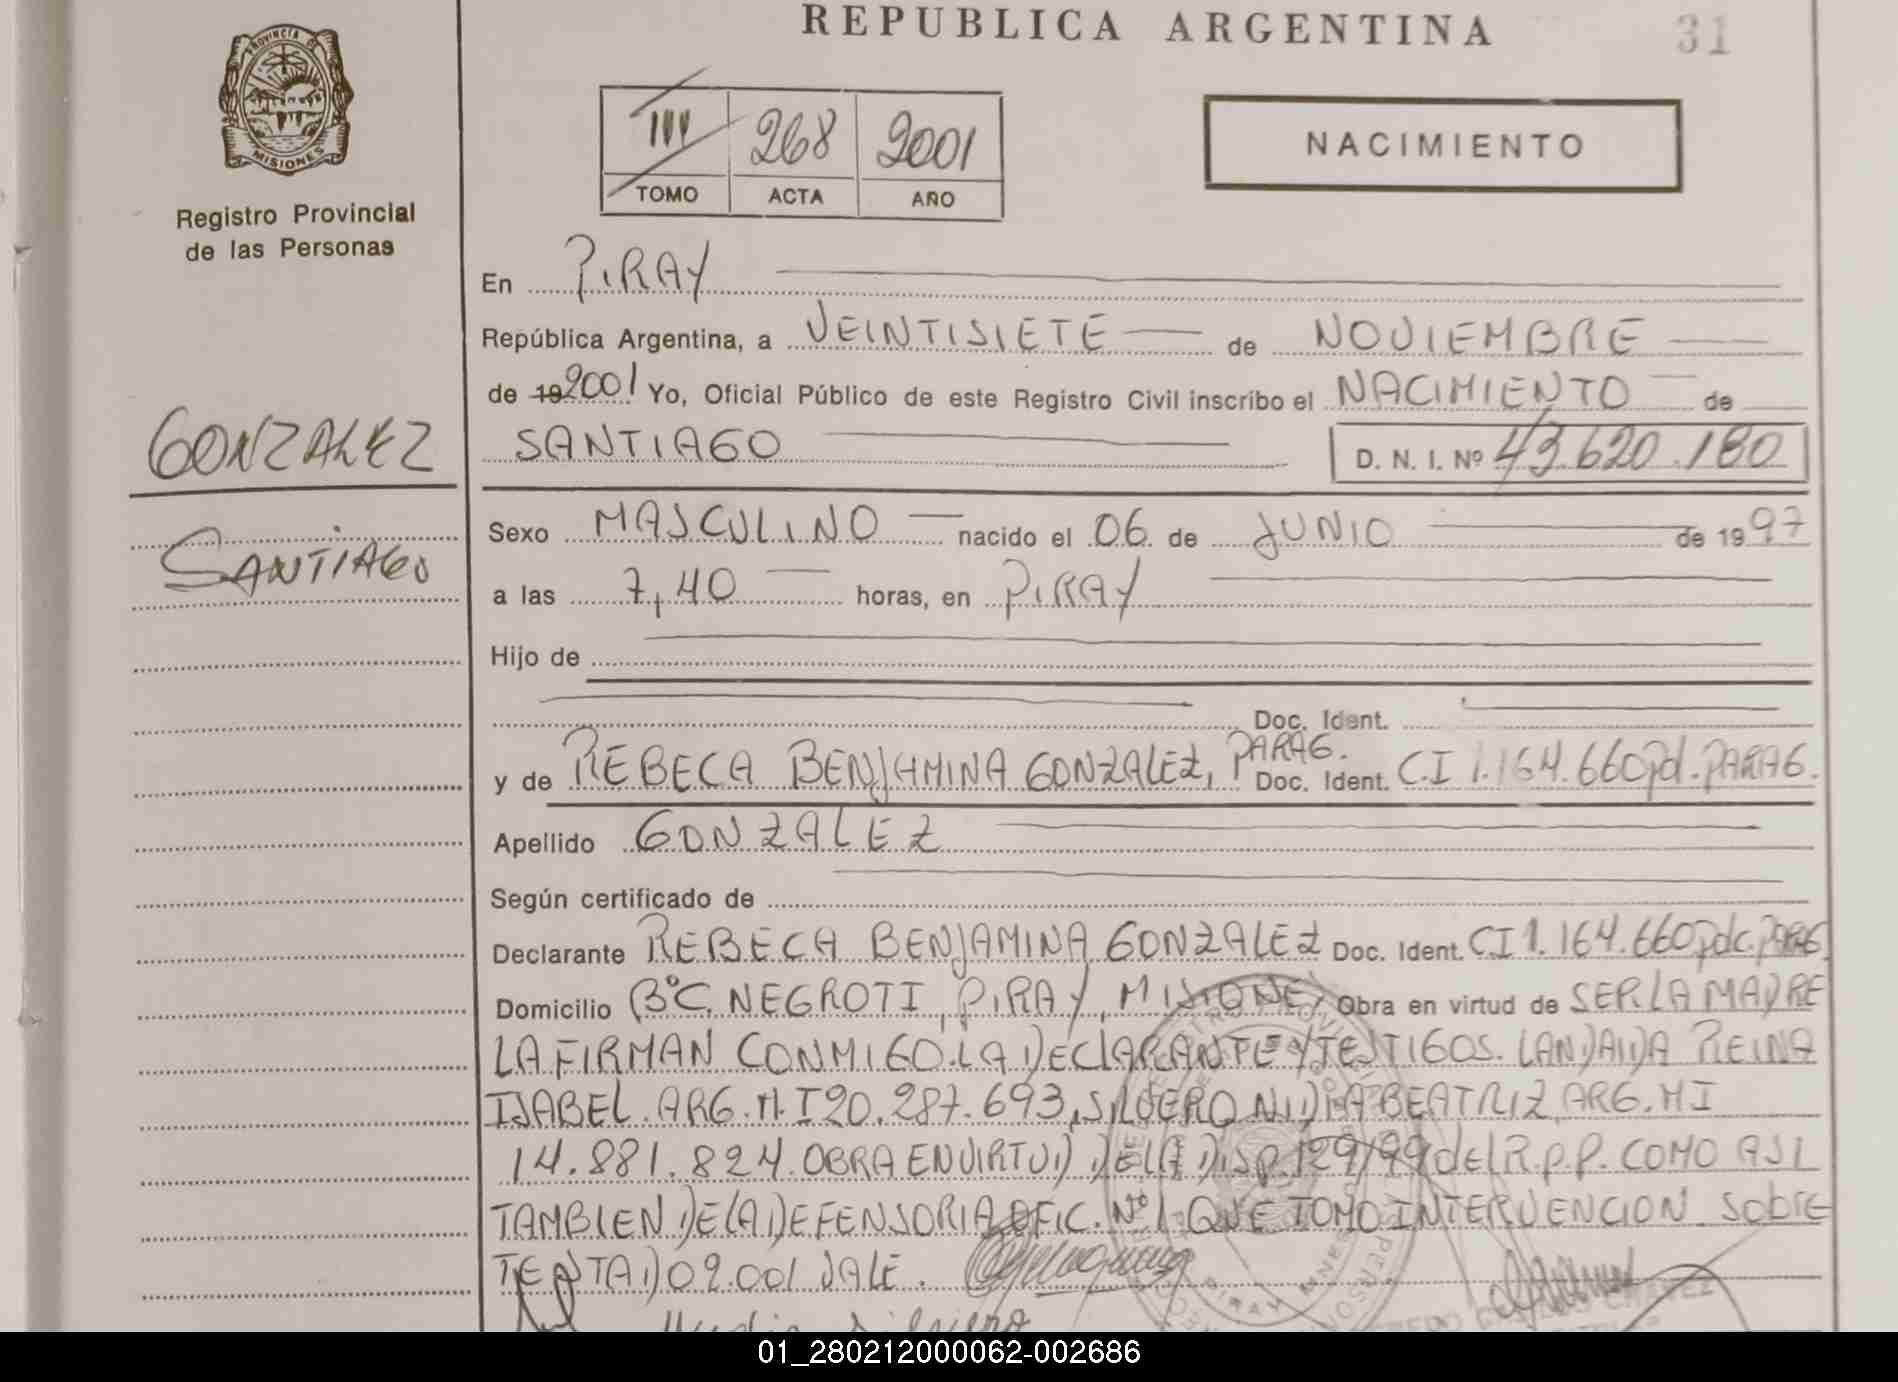 REPUBLICA ARGENTINA
31
PROVINCIA DE
MISIONES
Registro Provincial
de las Personas
III 268 2001
TOMO ACTA AÑO
NACIMIENTO
En PIRAY
República Argentina, a VEINTISIETE de NOVIEMBRE
de 19 2001 Yo, Oficial Público de este Registro Civil inscribo el NACIMIENTO de
GONZALEZ
SANTIAGO D. N. I. Nº 43.620.180
Sexo MASCULINO nacido el 06 de JUNIO de 1997
SANTIAGO
a las 7,40 horas, en PIRAY
Hijo de
Doc. Ident.
y de REBECA BENJAMINA GONZALEZ, PARAG. Doc. Ident. C.I 1.164.660 pd. PARAG.
Apellido GONZALEZ
Según certificado de
Declarante REBECA BENJAMINA GONZALEZ Doc. Ident. CI 1.164.660 pdc. PARAG.
Domicilio BºC. NEGROTI, PIRAY, MISIONES Obra en virtud de SER LA MADRE
LA FIRMAN CONMIGO LA DECLARANTE Y TESTIGOS. LANDAIDA REINA
ISABEL. ARG. M.I 20.287.693, SILVERO NIDIA BEATRIZ, ARG. MI
14.881.824. OBRA EN VIRTUD DE LA DISP. 129/99 del R.P.P. COMO ASI
TAMBIEN DE LA DEFENSORIA OFIC. Nº 1 QUE TOMO INTERVENCION. SOBRE
TENTADO 2.001 VALE.
01_280212000062-002686